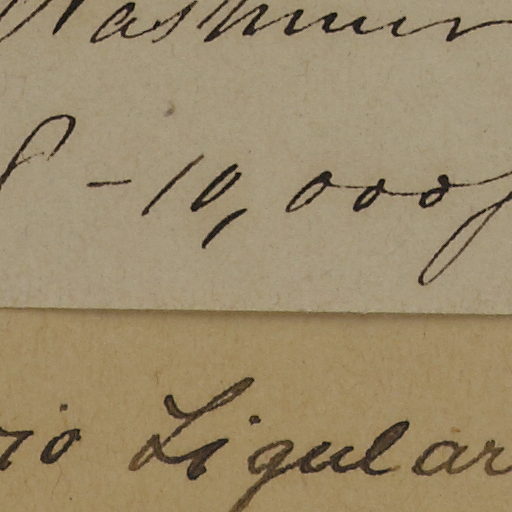 Kashmir
8-10,000f
io Ligular